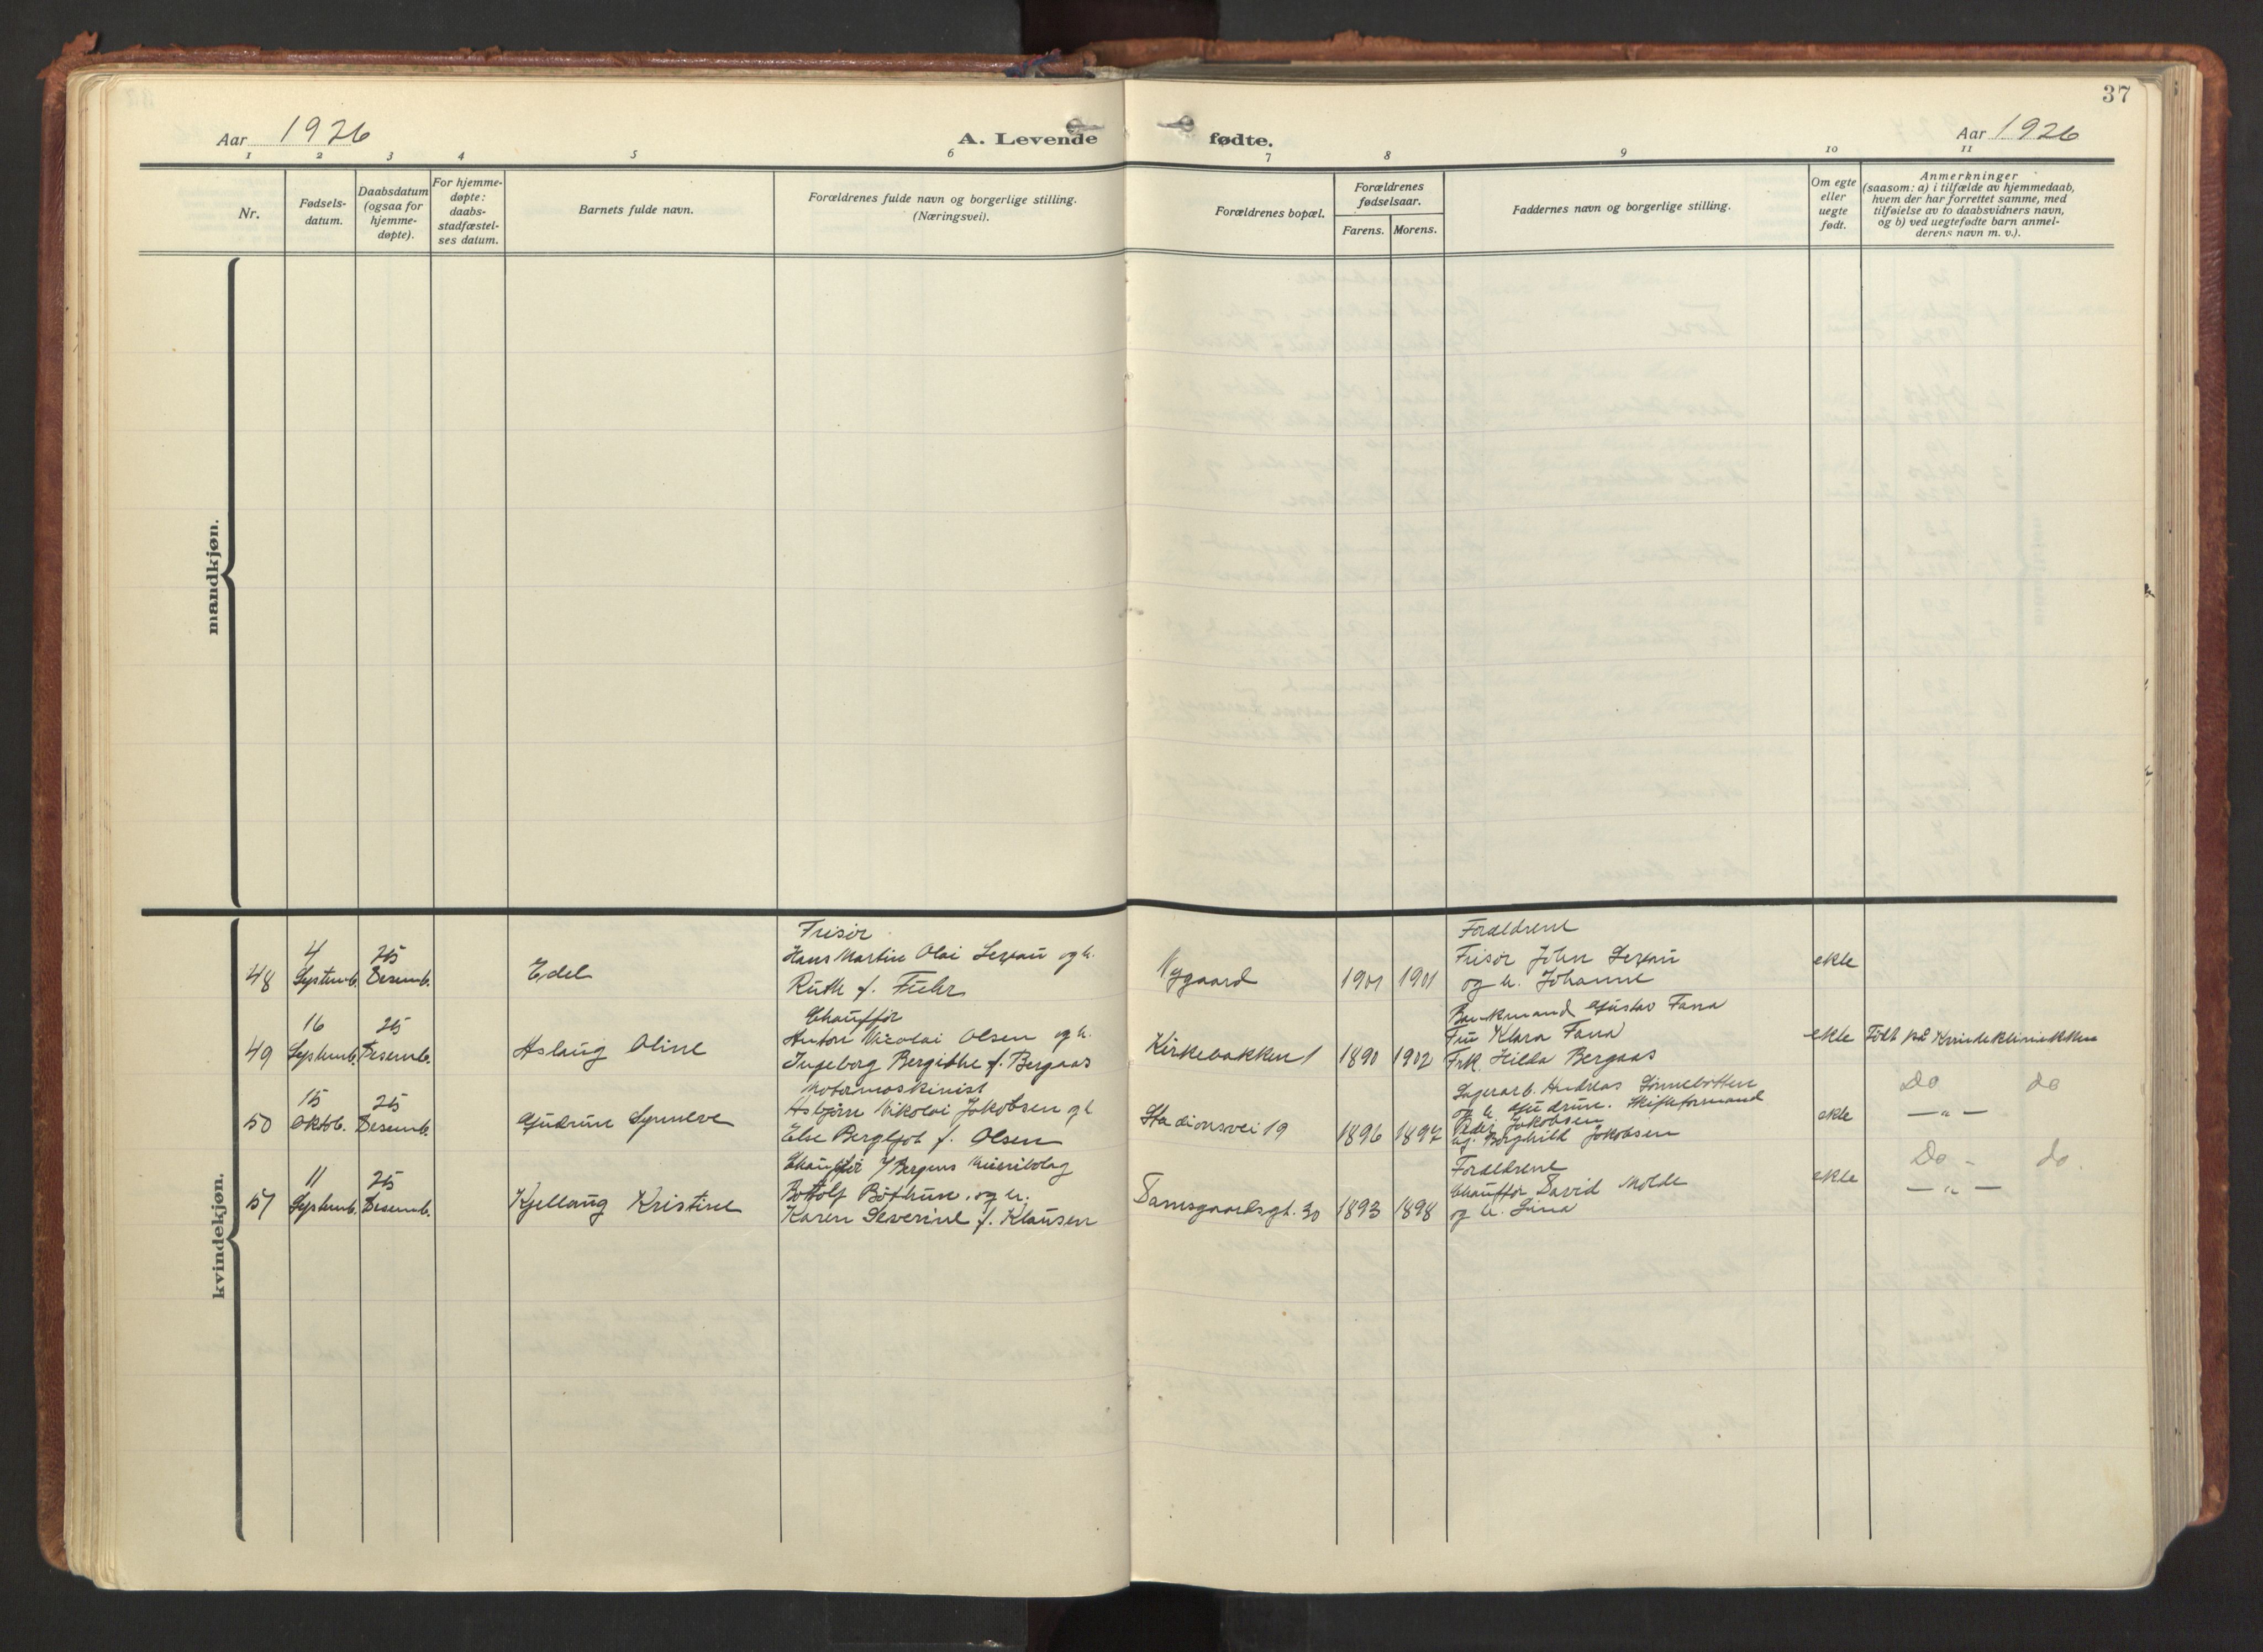 37
Aar 1926
A. Levende
fødte.
Aar 1926
1 2 3 4 5 6 7 8 9 10 11
Nr.
Fødsels-
datum.
Daabsdatum
(ogsaa for
hjemme-
døpte).
For hjemme-
døpte:
daabs-
stadfæstel-
ses datum.
Barnets fulde navn.
Forældrenes fulde navn og borgerlige stilling.
(Næringsvei).
Forældrenes bopæl.
Forældrenes
fødselsaar.
Farens. Morens.
Faddernes navn og borgerlige stilling.
Om egte
eller
uegte
født.
Anmerkninger
(saasom: a) i tilfælde av hjemmedaab,
hvem der har forrettet samme, med
tilføielse av to daabsvidners navn,
og b) ved uegtefødte barn anmel-
derens navn m. v.).
mandkjøn.
kvindekjøn.
48
4
Septemb.
25
Desemb.
Edel
Frisør
Hans Martin Olai Lexau og h.
Ruth f. Fuhr
Nygaard
1901 1901
Foraeldrene
Frisør John Lexau
og h. Johanne
ekte
49
16
Septemb.
25
Desemb.
Aslaug Oline
Chauffør
Anton Nicolai Olsen og h.
Ingeborg Bergithe f. Bergaas
Kirkebakken 1
1890 1902
Bankmand Gustav Fana
Fru Klara Fana
Frk. Hilda Bergaas
ekte
Født på Kvindeklinikken
50
15
Oktob.
25
Desemb.
Gudrun Synneve
Motormaskinist
Asbjørn Nikolai Jakobsen og h
Else Bergljot f. Olsen
Stadionsvei 19
1896 1897
Lagerarb. Andreas
og h. Gudrun. Skifteformand
Peder Jakobsen
Borghild Jakobsen
ekte
Do do
— " —
51
11
Septemb.
25
Desemb.
Kjellaug Kristine
Chauffør i/ Bergens
Bottolf Bøthun og h.
Karen Severine f. Klausen
Damsgaardsgt. 30
1893 1898
Foraeldrene
Chauffør David Molde
og h. Lina
ekte
Do - do.
— " —